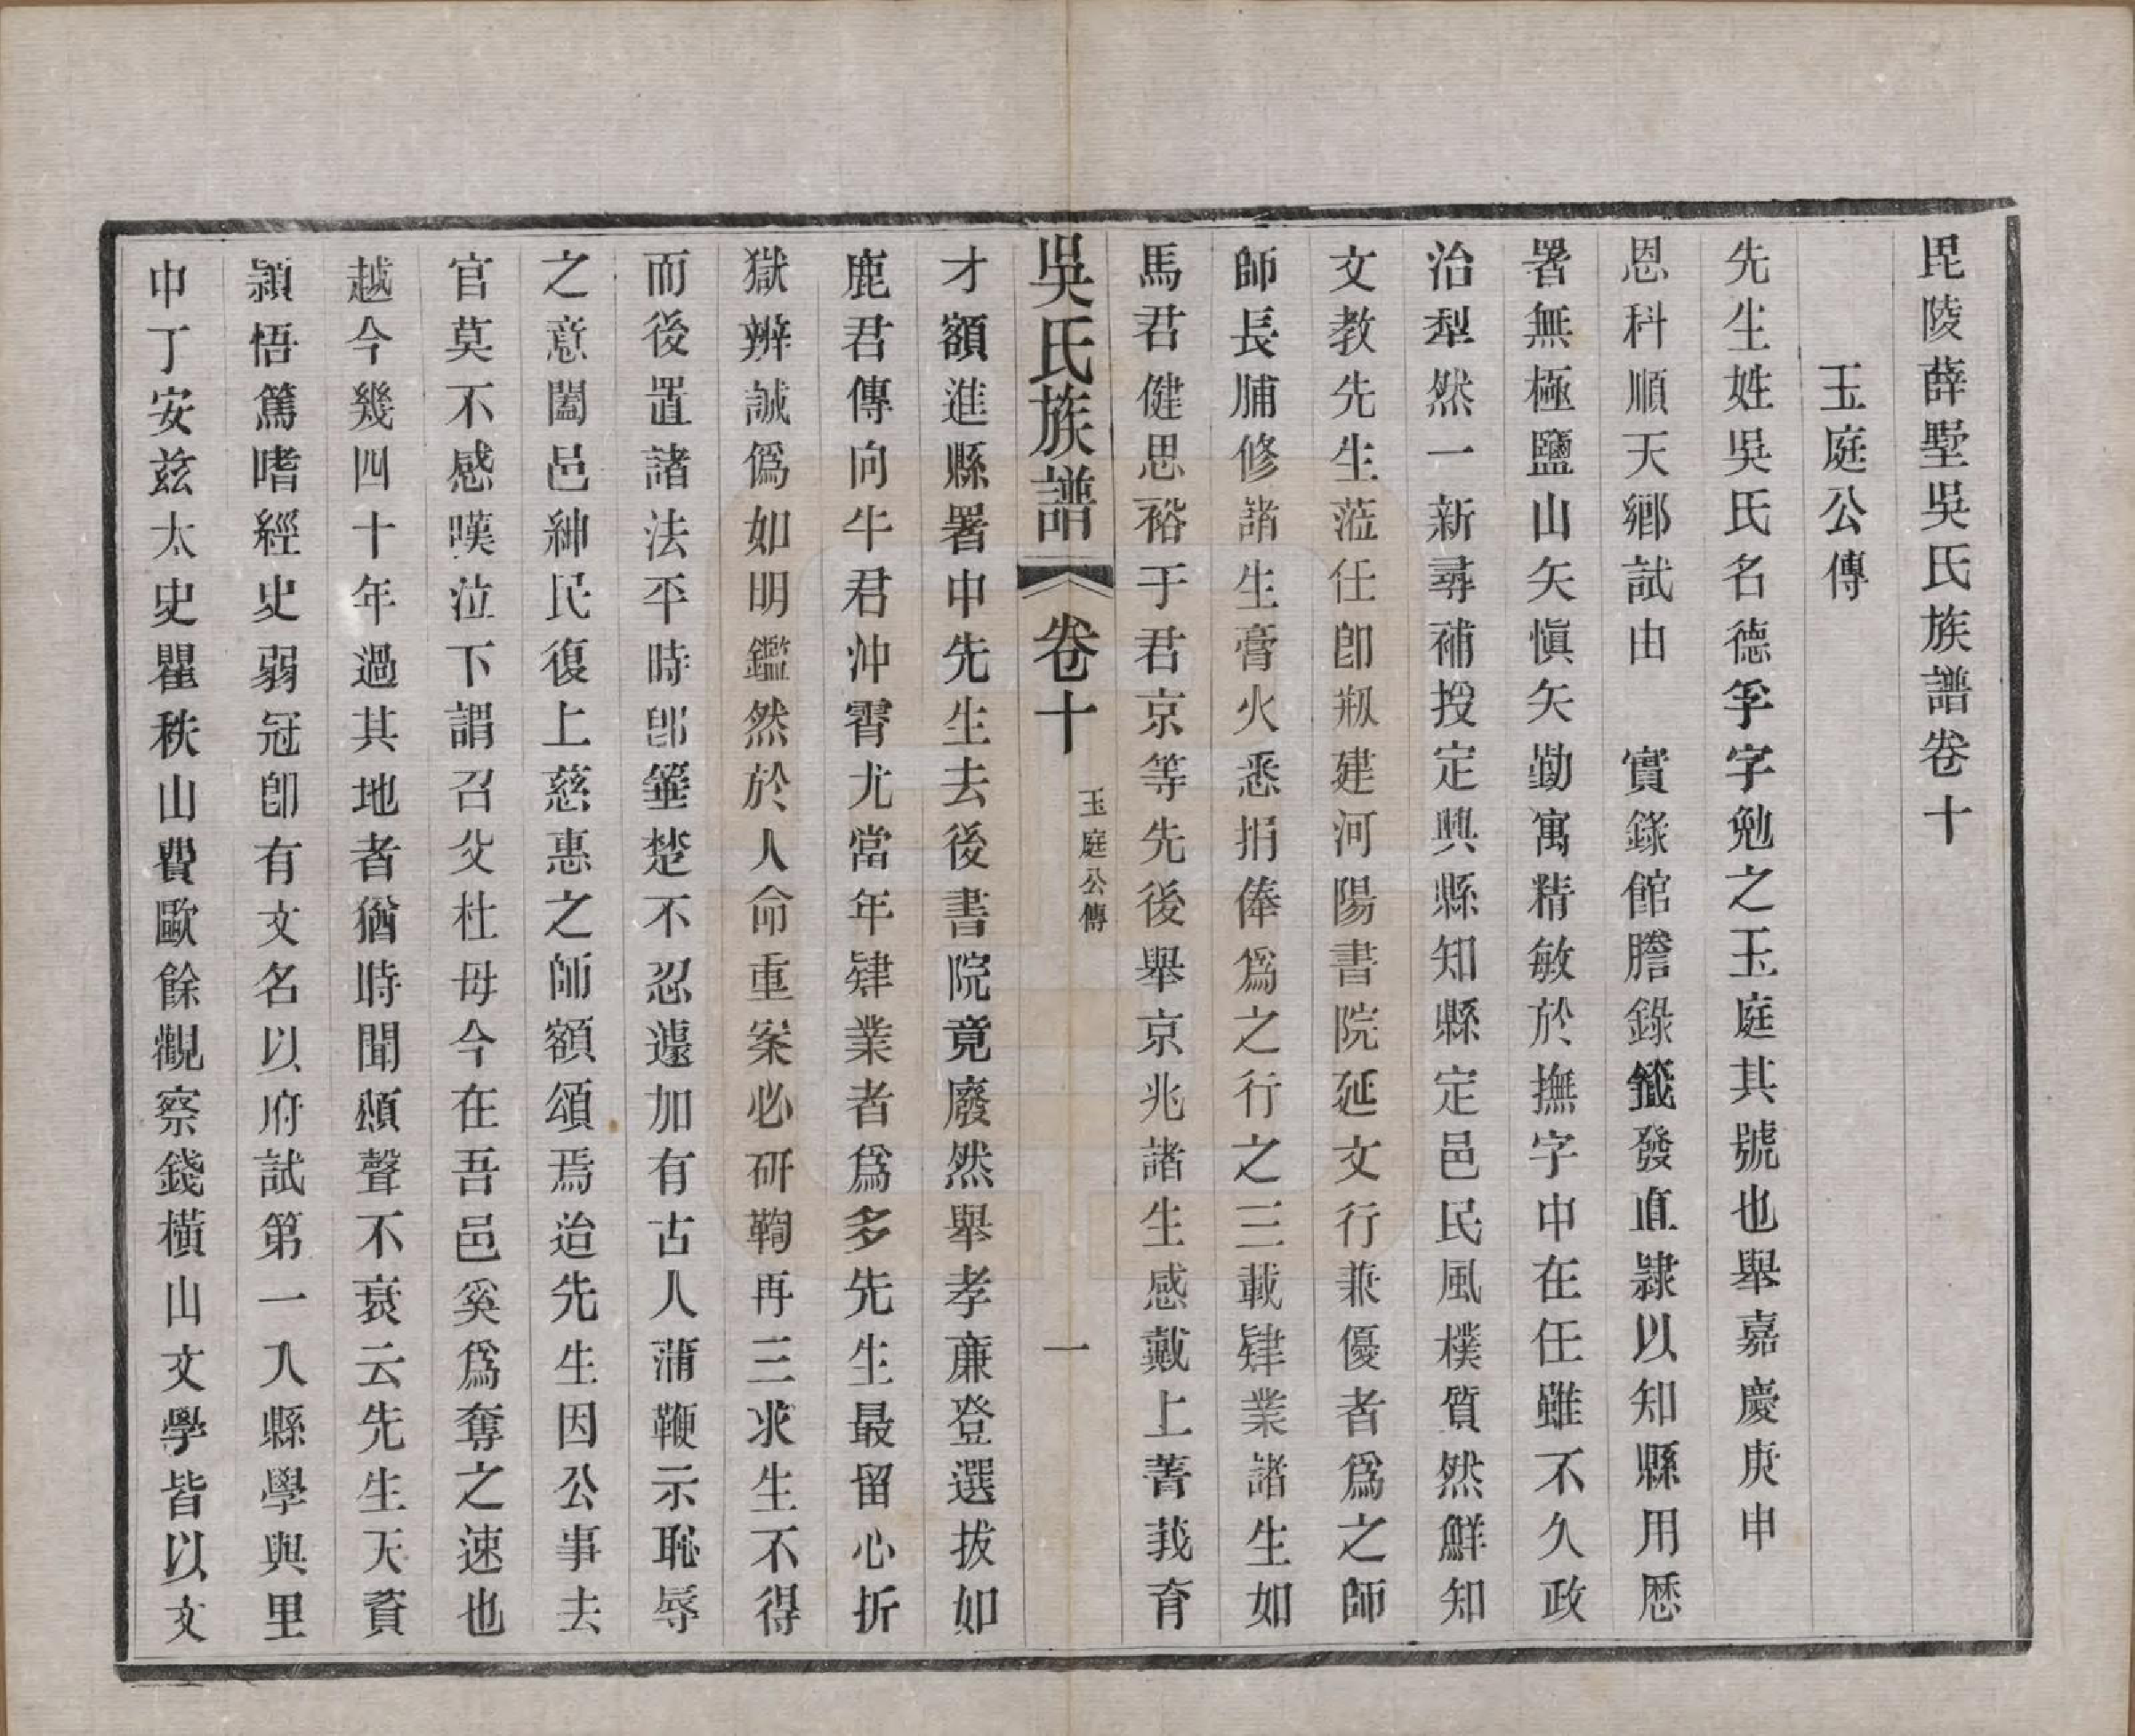 毘陵薛墅吳氏族譜卷十
玉庭公傳
先生姓吳氏名德孚字勉之玉庭其號也舉嘉慶庚申
恩科順天鄉試由　實錄館謄錄籤發直隸以知縣用歷
署無極鹽山矢慎矢勤寓精敏於撫字中在任雖不久政
治犁然一新尋補授定興縣知縣定邑民風樸質然鮮知
文教先生蒞任卽剏建河陽書院延文行兼優者爲之師
師長脯修諸生膏火悉捐俸爲之行之三載肄業諸生如
馬君健思裕于君京等先後舉京兆諸生感戴上菁莪育
吳氏族譜　卷十　玉庭公傳　一
才額進縣署中先生去後書院竟廢然舉孝廉登選拔如
鹿君傳向牛君沖霄尤當年肄業者爲多先生最留心折
獄辨誠僞如明鑑然於人命重案必研鞫再三求生不得
而後置諸法平時卽箠楚不忍遽加有古人蒲鞭示恥辱
之意闔邑紳民復上慈惠之師額頌焉迨先生因公事去
官莫不感嘆泣下謂召父杜母今在吾邑奚爲奪之速也
越今幾四十年過其地者猶時聞頌聲不衰云先生天資
穎悟篤嗜經史弱冠卽有文名以府試第一入縣學與里
中丁安茲太史瞿秩山費歐餘觀察錢橫山文學皆以文